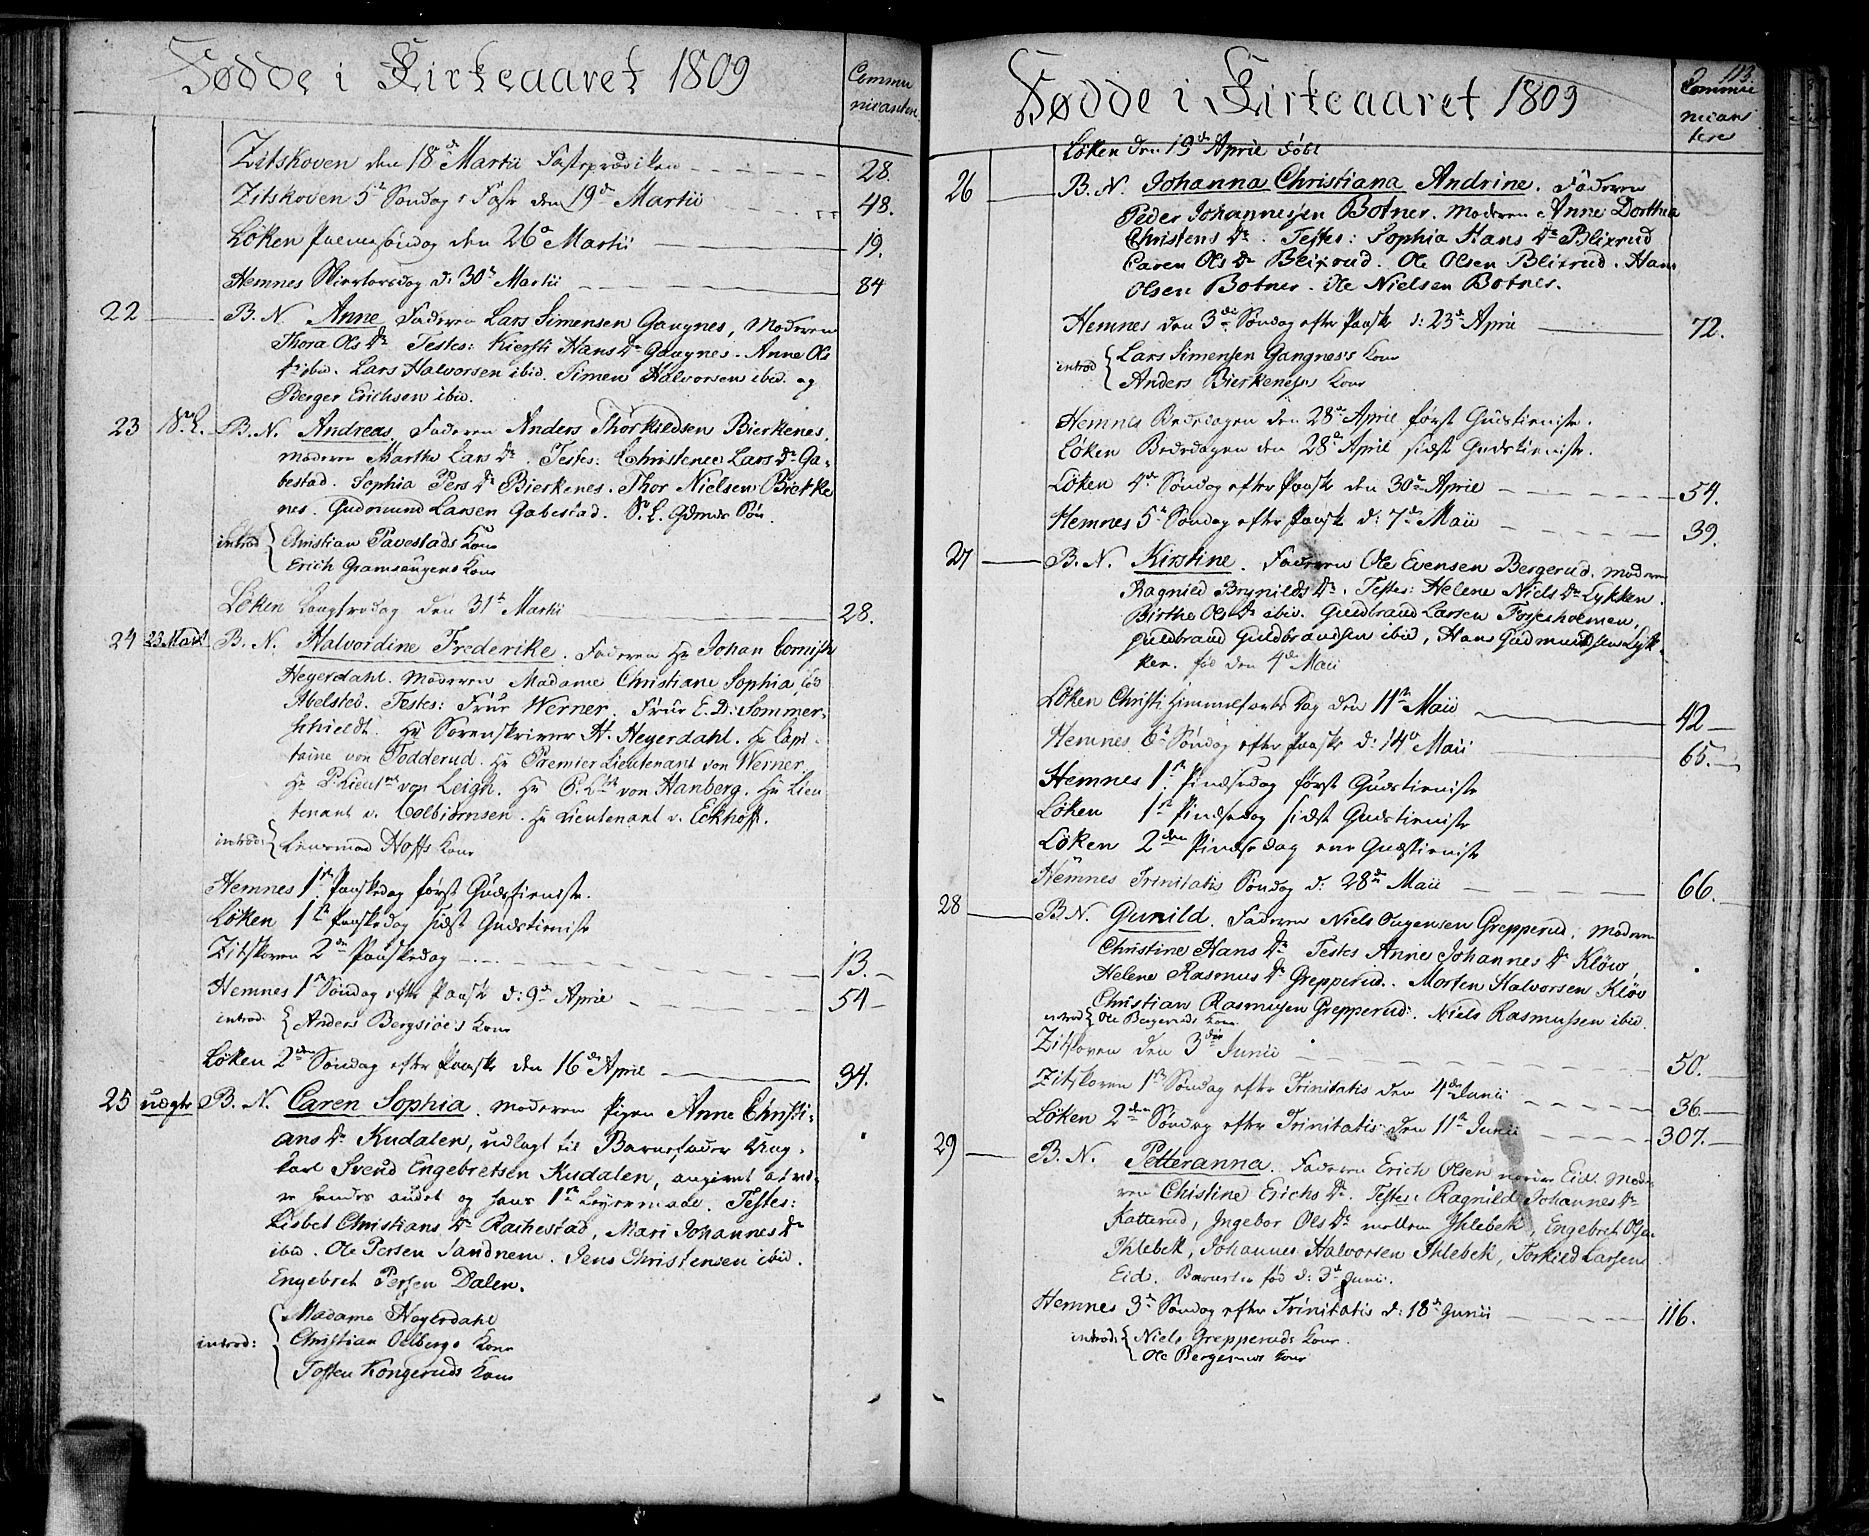 Fødde i Kirkeaaret 1809
Commu
nicantere
Zitskoven den 18de Martii Fasteprædiken 28.
Zitskoven 5te Søndag i Faste den 19de Martii 48.
Løken Palmesøndag den 26de Martii 19.
Hemnes Skiertorsdag d: 30te Martii 84
22 B. N. Anne Faderen Lars Simensen Gangnes, Moderen
Thora Ols Dr Testes: Kiersti Hans Dr Gangnes. Anne Ols
Dr ibid. Lars Halvorsen ibid. Simen Halvorsen ibid. og
Berger Erichsen ibid.
23 B. N. Andreas Faderen Anders Thorkildsen Bierkenes,
Moderen Marthe Lars Dr. Testes: Christence Lars Dr Ga-
bestad. Sophia Pers Dr Bierkenes. Thor Nielsen Bierke
nes. Gudmund Larsen Gabestad.
introd { Christian Pavestads Kone
Erich Gramsengens Kone
Løken Langfredag den 31te Martii 28.
24 23 Mart B. N. Halvordine Frederike. Faderen Hr Johan Cornisch
Heyerdahl. Moderen Madame Christiane Sophia, fød
Abelsted. Testes: Frue Werner. Frue E. D: Sommer-
schieldt. Hr Sorenskriver H. Heyerdahl. Hr Capi-
taine von Todderud. Hr Premier Lieutenant von Werner
Hr P. Lieutnt von Leigh. Hr P. Ltnt von Hanberg. Hr Lieu
tenant v. Colbiørnsen. Hr Lieutenant v. Eckhoff.
introd: { Lensmand Hoffs Kone
Hemnes 1ste Paaskedag først Gudstieniste.
Løken 1ste Paaskedag sidst Gudstieniste
Zitskoven 2den Paaskedag 13.
Hemnes 1ste Søndag efter Paaske d: 9de April 54
introd: { Anders Bergsiøe's Kone
Løken 2den Søndag efter Paaske den 16de April 34.
25 uægte B. N. Caren Sophia. Moderen Pigen Anne Christi-
ans Dr Kudalen, udlagt til Barnefader Ung-
karl Svend Engebretsen Kudalen, angivet at væ-
re hendes andet og hans 1ste Leyermaal. Testes:
Lisbet Christians Dr Rachestad, Mari Johannes Dr
ibid. Ole Persen Sandnem. Jens Christensen ibid.
Engebret Persen Dalen.
introd: { Madame Heyerdahl
Christian Oelbergs Kone
Tosten Kongeruds Kone
Fødde i Kirkeaaret 1809
113.
Commu
nican
tere
Løken den 19de April døbt
26 B. N. Johanna Christiana Andrine. Faderen
Peder Johannesen Botner. Moderen Anne Dorthea
Christens Dr. Testes: Sophia Hans Dr Blixrud
Caren Ols Dr Blixrud. Ole Olsen Blixrud. Hans
Olsen Botner. Ole Nielsen Botner.
Hemnes den 3die Søndag efter Paaske d: 23de April 72.
introd { Lars Simensen Gangnes's Kone
Anders Bierkenes's Kone
Hemnes Bededagen den 28de April først Gudstieniste.
Løken Bededagen den 28de April sidst Gudstieniste.
Løken 4de Søndag efter Paaske den 30te April 54.
Hemnes 5te Søndag efter Paaske d: 7de Maii 39.
27 B. N. Kirstine. Faderen Ole Evensen Bergerud. Moderen
Ragnied Brynilds Dr. Testes: Helene Niels Dr Lykken
Birthe Ols Dr ibid. Guldbrand Larsen Fossesholmen,
Guldbrand Guldbrandsen ibid, Hans Gudmundsen Lyk-
ken. fød den 4de Maii
Løken Christi Himmelfarts Dag den 11te Maii 42
Hemnes 6te Søndag efter Paaske d: 14de Maii 65.
Hemnes 1ste Pindsedag først Gudstieniste
Løken 1ste Pindsedag sidst Gudstieniste
Løken 2den Pindsedag ene Gudstieniste
Hemnes Trinitatis Søndag d: 28de Maii 66.
28 B. N. Gunild. Faderen Niels Ougensen Grepperud, Moderen
Christine Hans Dr Testes Anne Johannes Dr Kløw
Helene Rasmus Dr Grepperud. Morten Halvorsen Kløv
Christian Rasmusen Grepperud. Niels Rasmussen ibid.
introd { Ole Bergeruds Kone
Zitskoven den 3die Junii 50.
Zitskoven 1ste Søndag efter Trinitatis den 4de Junii 36.
Løken 2den Søndag efter Trinitatis den 11te Junii 307.
29 B. N. Petteranna. Faderen Erich Olsen nordre Eid. Mode-
ren Christine Erichs Dr. Testes: Ragnild Johannes Dr
Katterud, Ingebor Ols Dr mellem Ihlebek, Engebret Olsen
Ihlebek, Johannes Halvorsen Ihlebek, Torkild Larsen
Eid. Barnet er fød d: 3de Junii.
Hemnes 3de Søndag efter Trinitatis d: 18de Junii 116.
introd: { Niels Grepperuds Kone.